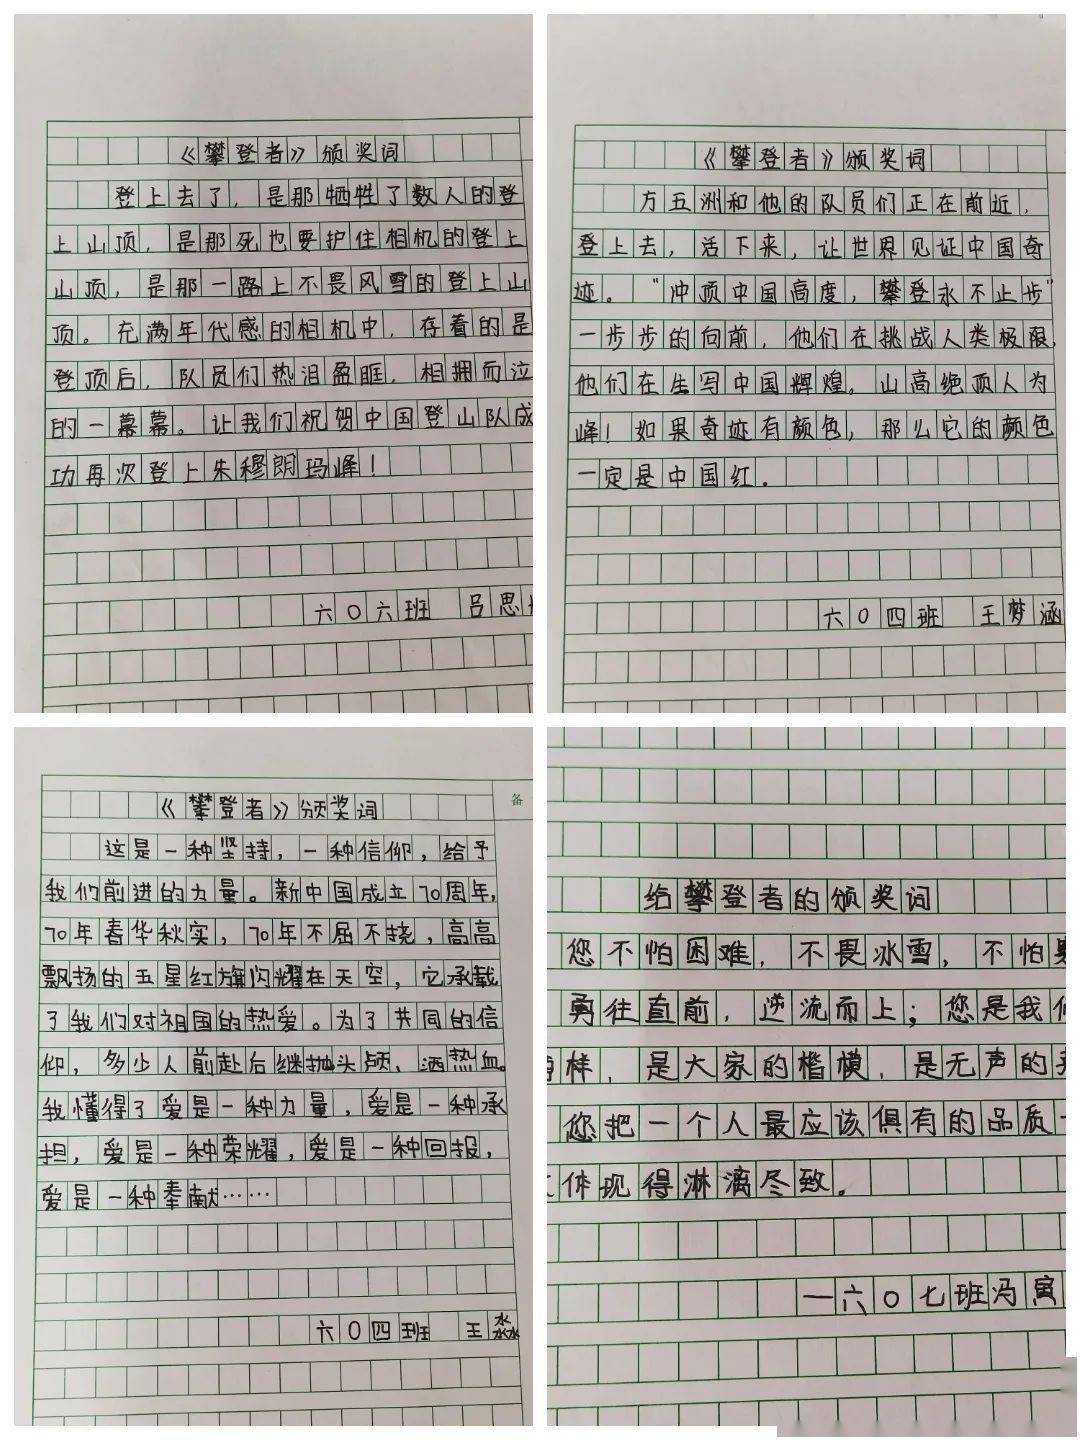 《攀登者》颁奖词
登上去了，是那牺牲了数人的登
上山顶，是那死也要护住相机的登上
山顶，是那一路上不畏风雪的登上山
顶。充满年代感的相机中，存着的是
登顶后，队员们热泪盈眶，相拥而泣
的一幕幕。让我们祝贺中国登山队成
功再次登上朱穆朗玛峰！
六〇六班 吕思
《攀登者》颁奖词
方五洲和他的队员们正在前近，
登上去，活下来，让世界见证中国奇
迹。“冲顶中国高度，攀登永不止步”
一步步的向前，他们在挑战人类极限，
他们在生写中国辉煌。山高绝顶人为
峰！如果奇迹有颜色，那么它的颜色
一定是中国红。
六〇四班 王梦涵
备
《攀登者》颁奖词
这是一种坚持，一种信仰，给予
我们前进的力量。新中国成立70周年，
70年春华秋实，70年不屈不挠，高高
飘扬的五星红旗闪耀在天空，它承载
了我们对祖国的热爱。为了共同的信
仰，多少人前赴后继抛头颅，洒热血。
我懂得了爱是一种力量，爱是一种承
担，爱是一种荣耀，爱是一种回报，
爱是一种奉献……
六〇四班 王淼
给攀登者的颁奖词
您不怕困难，不畏冰雪，不怕
勇往直前，逆流而上；您是我们
样，是大家的楷模，是无声的
您把一个人最应该俱有的品质一
体现得淋漓尽致。
一六〇七班冯寅